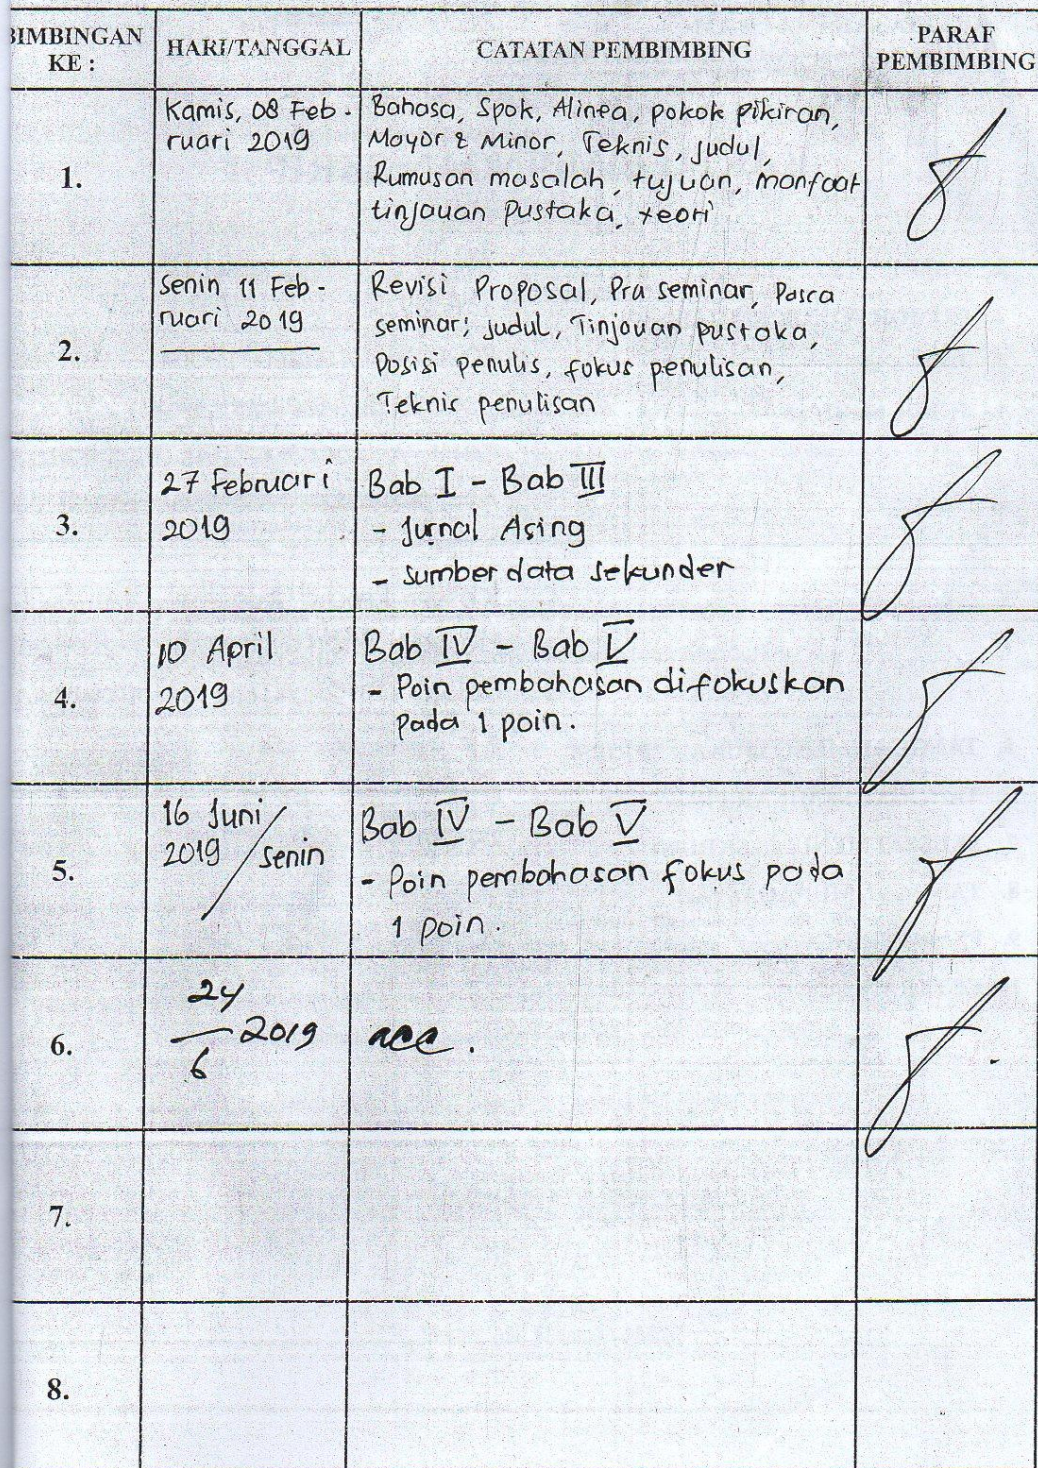 BIMBINGAN KE :
HARI/TANGGAL
CATATAN PEMBIMBING
PARAF PEMBIMBING
1.
Kamis, 08 Feb-
ruari 2019
Bahasa, Spok, Alinea, pokok pikiran,
Mayor & Minor, Teknis, judul,
Rumusan masalah, tujuan, manfaat
tinjauan Pustaka, teori
2.
Senin 11 Feb-
ruari 2019
Revisi Proposal, Pra seminar, Pasca
seminar; judul, Tinjauan pustaka,
Posisi penulis, fokus penulisan,
Teknis penulisan
3.
27 Februari
2019
Bab I - Bab III
- Jurnal Asing
- sumber data sekunder
4.
10 April
2019
Bab IV - Bab V
- Poin pembahasan difokuskan
pada 1 poin.
5.
16 Juni
2019 / Senin
Bab IV - Bab V
- Poin pembahasan fokus pada
1 poin.
6.
24
— 2019
6
acc.
7.
8.